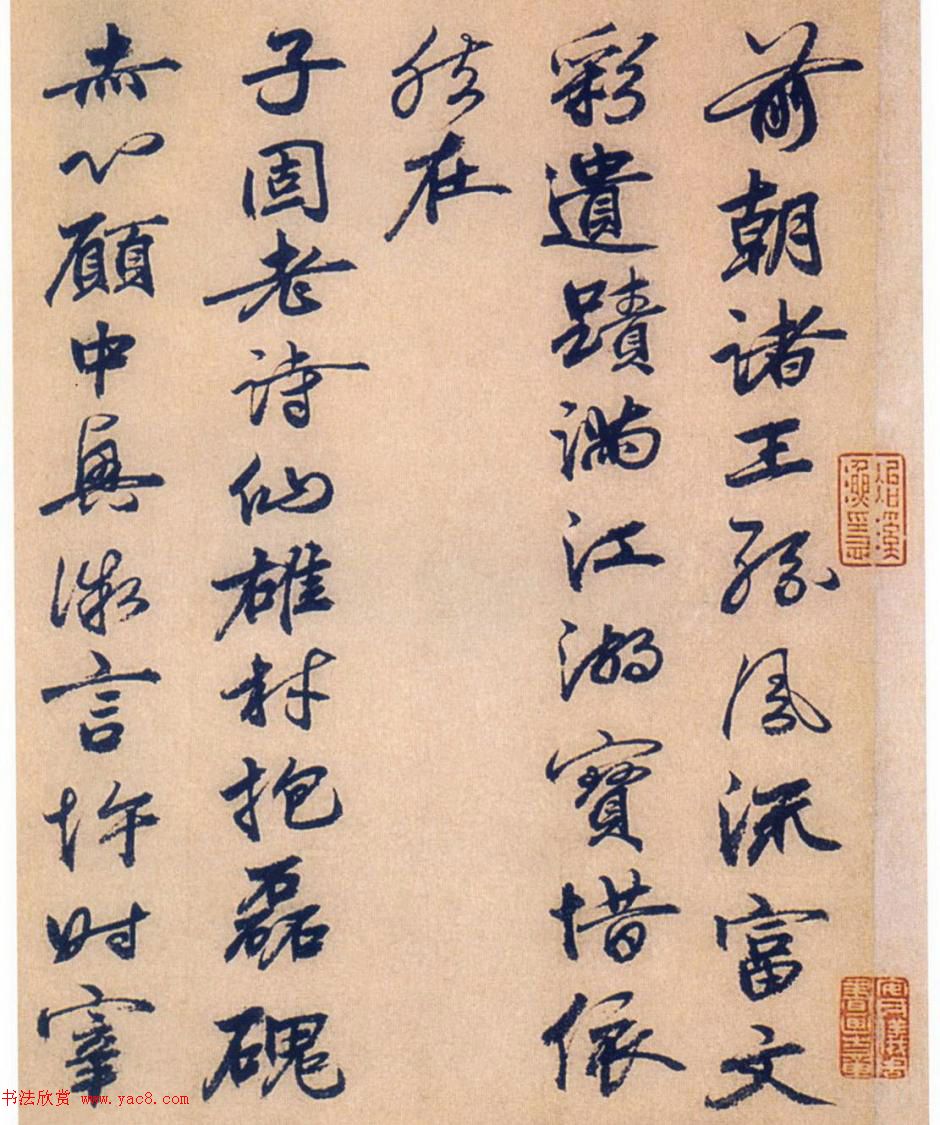 前朝諸王孫風流富文
彩遺蹟滿江湖寶惜依
然在
子固老詩仙雄材抱磊磈
赤心顧中興激言忤時宰
书法欣赏 www.yac8.com